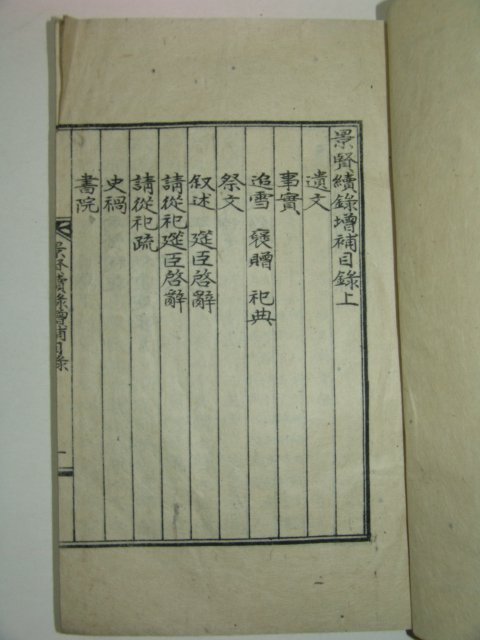 景賢續錄增補目錄上
遺文
事實
追雪 褒贈 祀典
祭文
叙述 筵臣啓辭
請從祀筵臣啓辭
請從祀疏
史禍
書院
景賢續錄增補目錄
一